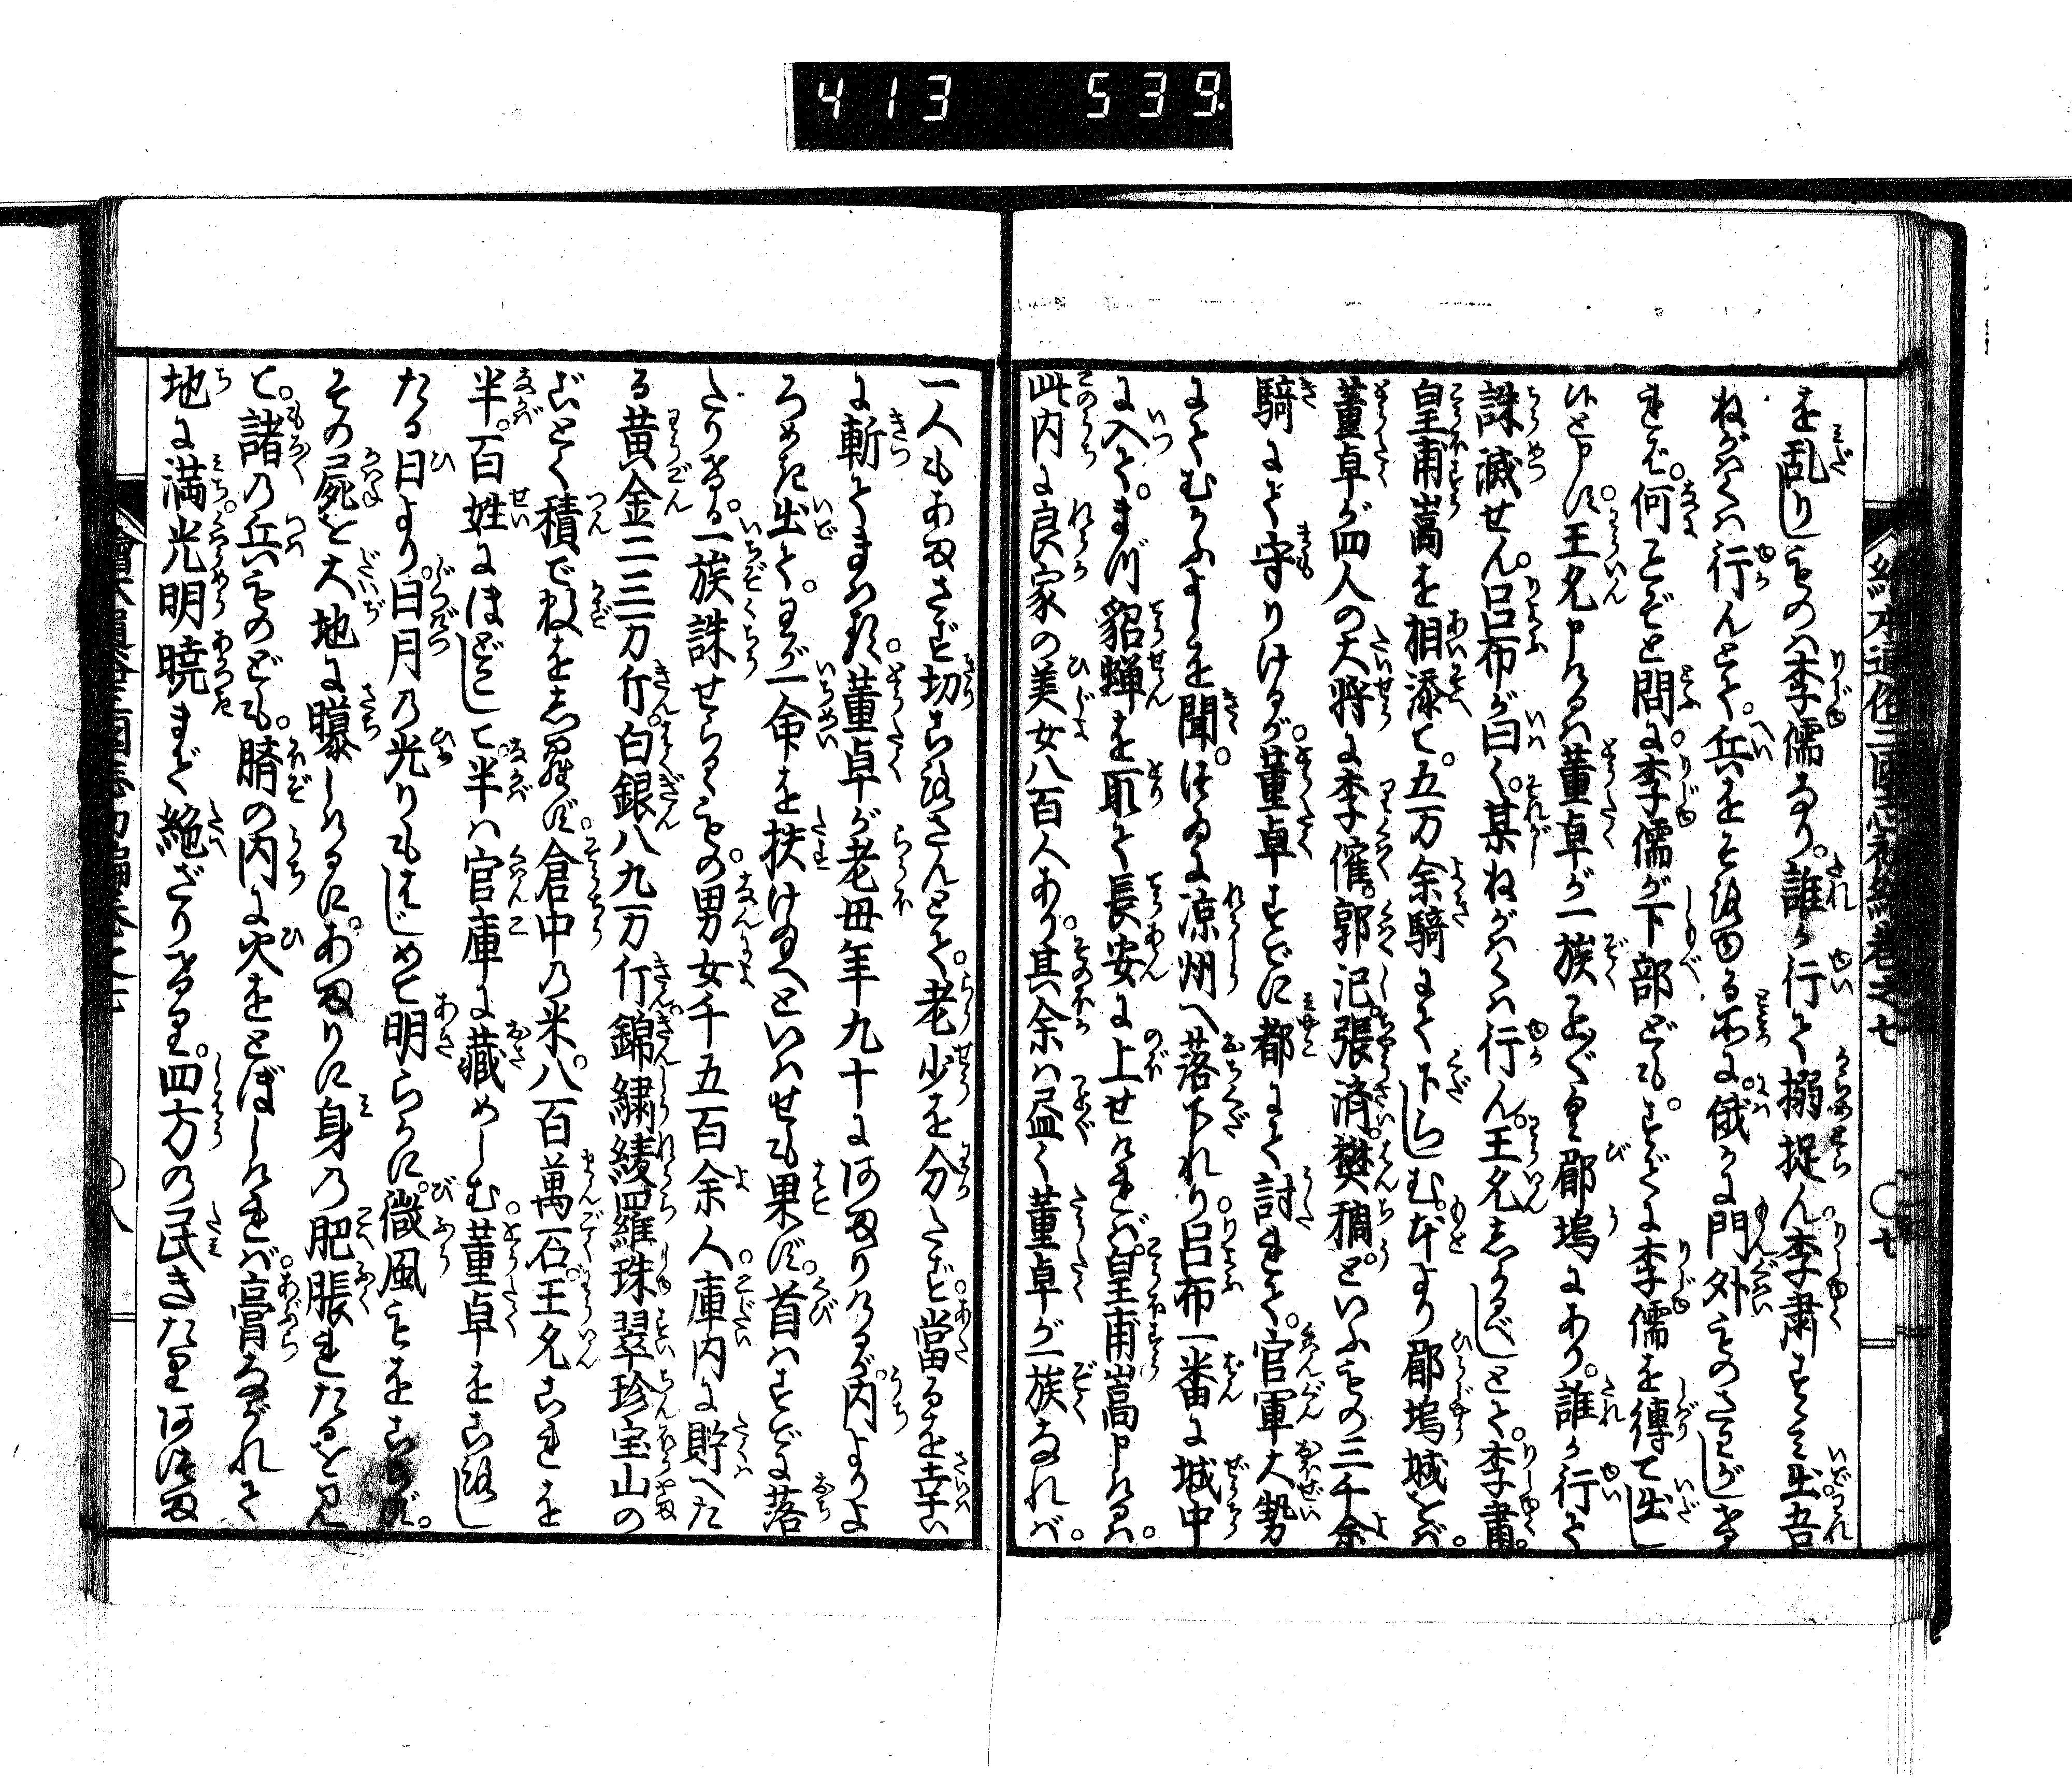 413 539.
絵本通俗三国志初編巻之七 〇七
を乱りしものハ李儒なり。誰か行て搦捉ん。李肅すゝミ出吾
ねがハくハ行んとて。兵をそろゆる所に。俄に門外ものさわがしける
まゝ。何ことぞと問に。李儒が下部ども。すでに李儒を縛て出し
ぬと申す。王允申けるハ董卓が一族こと〴〵く郿塢にあり。誰か行て
誅滅せん。呂布が曰く。某ねがハくハ行ん。王允しかるべしとて。李肅。
皇甫嵩を相添て。五万余騎にて下らしむ。本より郿塢城をバ。
董卓が四人の大将に李傕。郭汜。張済。樊稠といふもの三千余
騎にて守りけるが。董卓すでに都にて討れて。官軍大勢
にてむかふよしを聞。つゐに涼州へ落下れり。呂布一番に城中
に入て。まづ貂蝉を取て長安に上せけれバ。皇甫嵩申けるハ。
此内に良家の美女八百人あり。其余ハ盡く董卓が一族なれバ。
一人もあまさず切ころさんとて。老少を分たず。當るを幸い
に斬てまハる。董卓が老母年九十にあまりけるが。内よりよ
ろめき出て。わが一命を扶け給へといハせも果ず。首ハすでに落
たりける。一族誅せらるゝもの。男女千五百余人。庫内に貯へた
る黄金二三万斤。白銀八九万斤。錦繍綾羅珠翠珍宝山の
ごとく積で数をしらず。倉中の米。八百萬石。王允これを
半。百姓にほどこして。半ハ官庫に藏めしむ。董卓をころし
たる日より。日月の光りもはじめて明らかに。微風もをこらず。
その屍を大地に曝しけるに。あまりに身の肥脹れたるを見
て。諸の兵ものども。臍の内に火をとぼしけれバ。膏ながれて
地に満。光明暁まで絶ざりける。四方の民きたりあつま
〇八